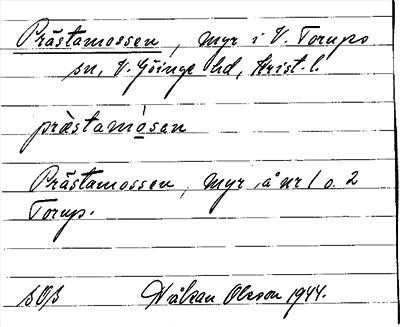 Prästamossen, myr i V. Torups
sn, V. Göinge hd, Krist. l.
præ̀stamósan
Prästamossen, myr å nr 1 o. 2
Torup.
Håkan Olsson 1944.